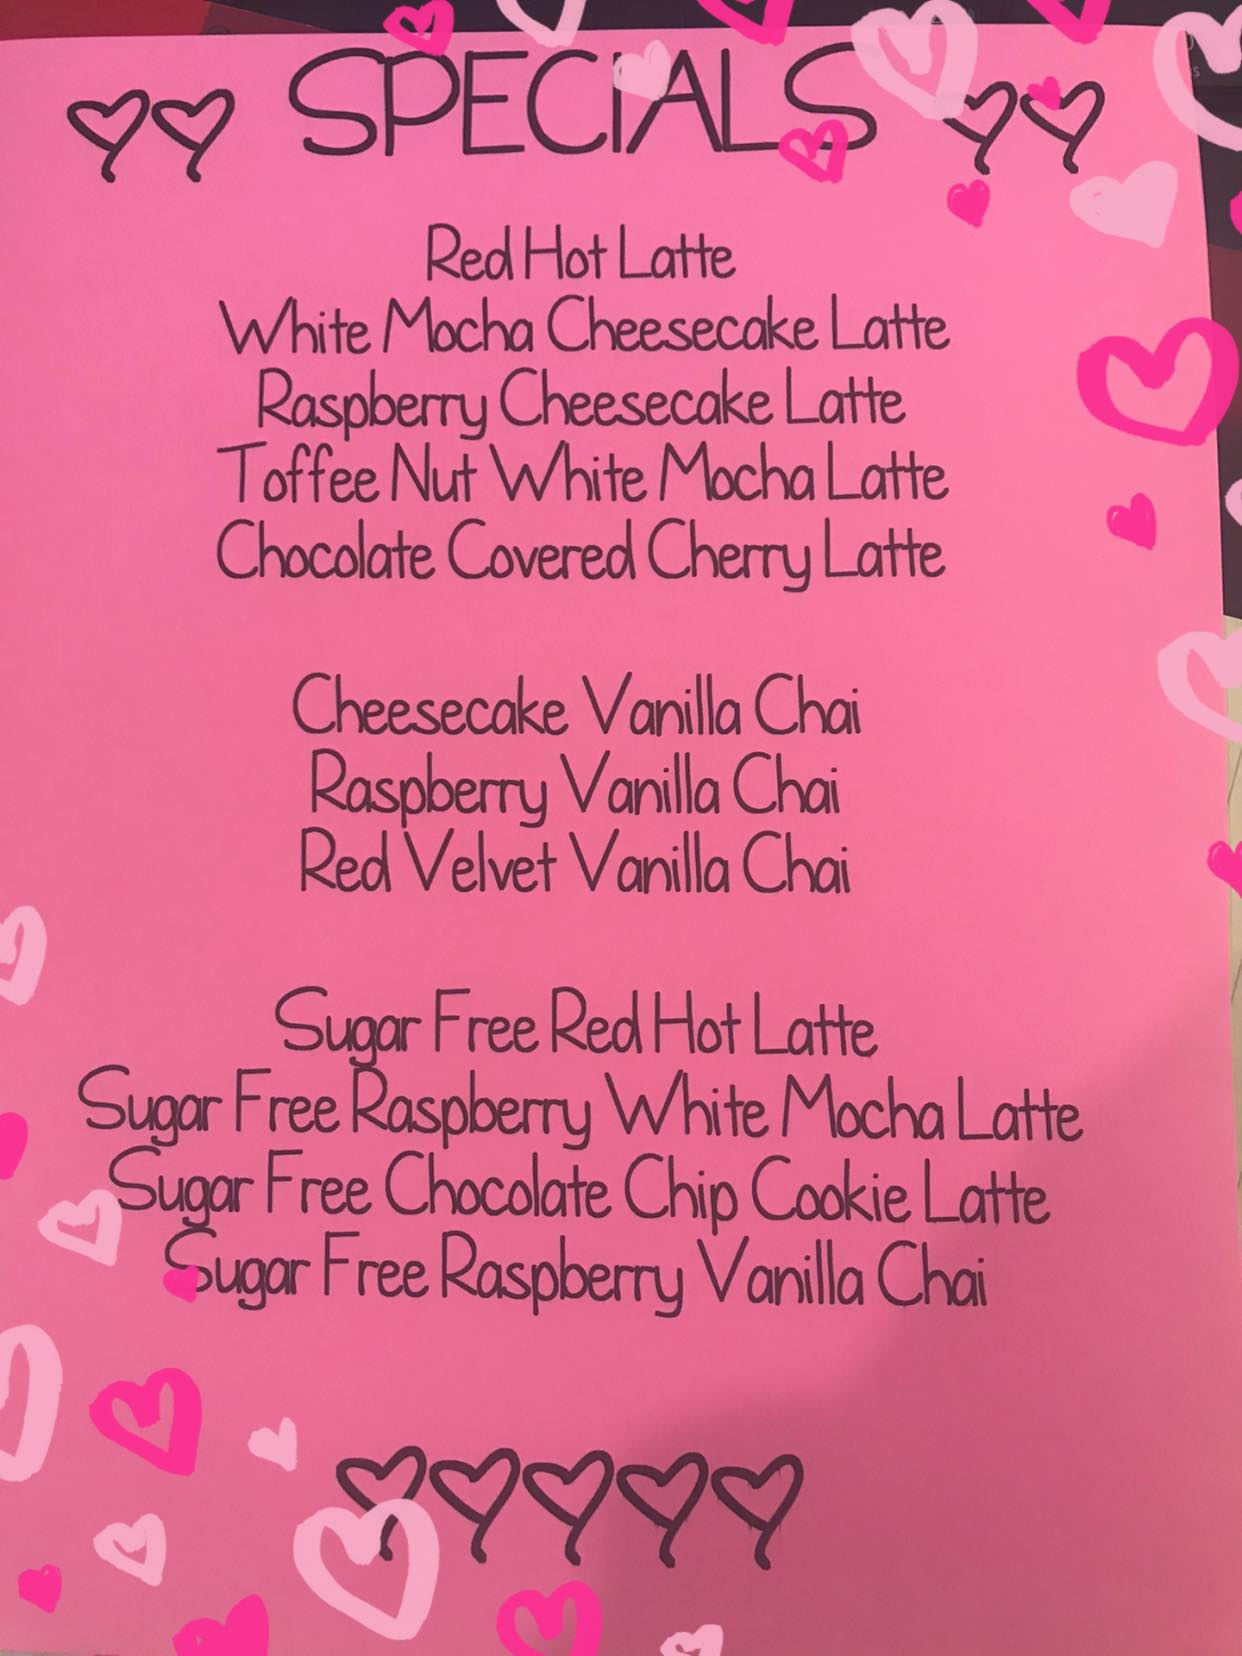 SPECIALS
Red Hot Latte
White Mocha Cheesecake Latte
Raspberry Cheesecake Latte
Toffee Nut White Mocha Latte
Chocolate Covered Cherry Latte
Cheesecake Vanilla Chai
Raspberry Vanilla Chai
Red Velvet Vanilla Chai
Sugar Free Red Hot Latte
Sugar Free Raspberry White Mocha Latte
Sugar Free Chocolate Chip Cookie Latte
Sugar Free Raspberry Vanilla Chai